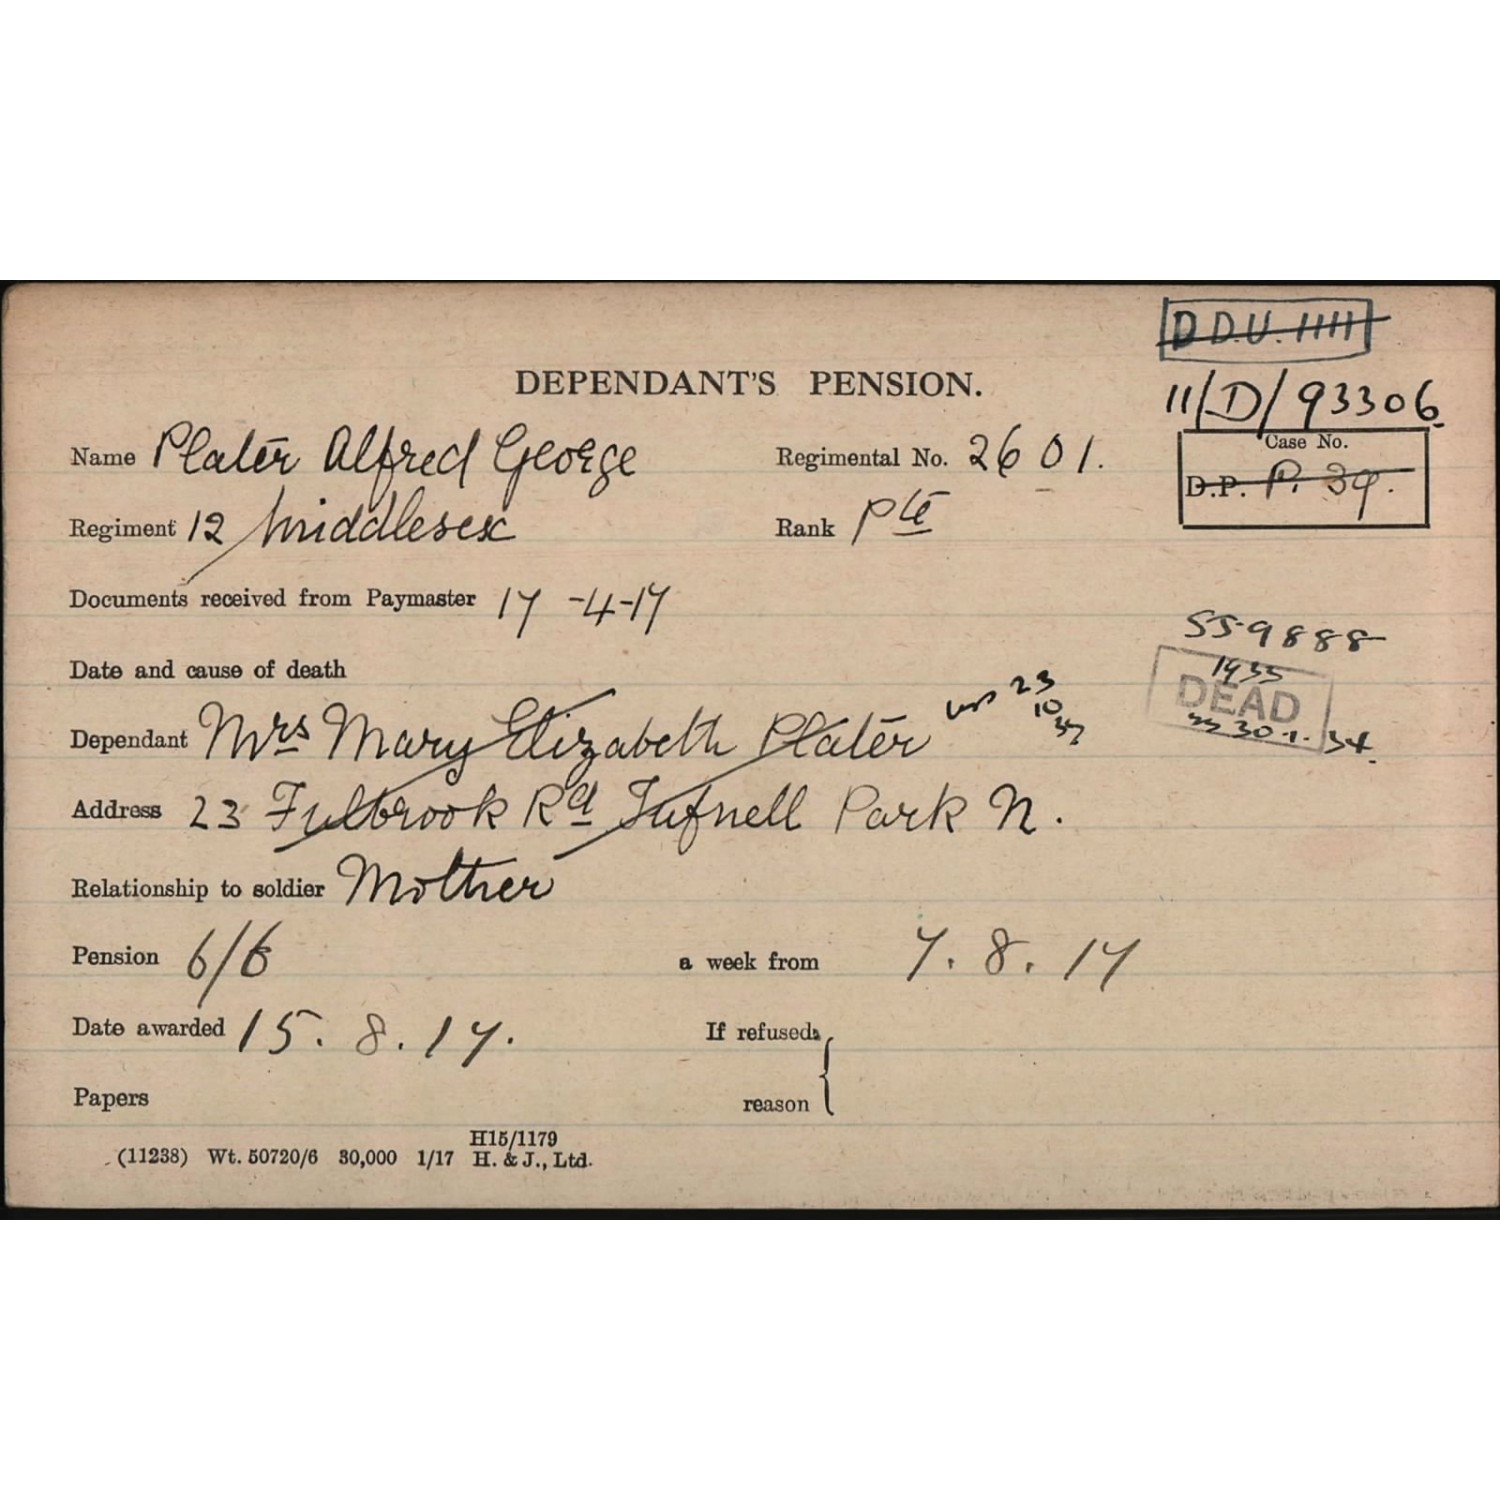 D D.U. 1111
DEPENDANT'S PENSION.
11/D/93306
Name Plater Alfred George Regimental No. 2601.
Case No.
D.P. P. 39.
Regiment 12 Middlesex Rank Pte
Documents received from Paymaster 17-4-17
559888
Date and cause of death
1935
DEAD
30.1.34
Dependant Mrs Mary Elizabeth Plater 23 10
Address 23 Fulbrook Rd Tufnell Park N.
Relationship to soldier Mother
Pension 6/6 a week from 7.8.17
Date awarded 15.8.17. If refused,
Papers reason
H15/1179
(11238) Wt. 50720/6 30,000 1/17 H. & J., Ltd.